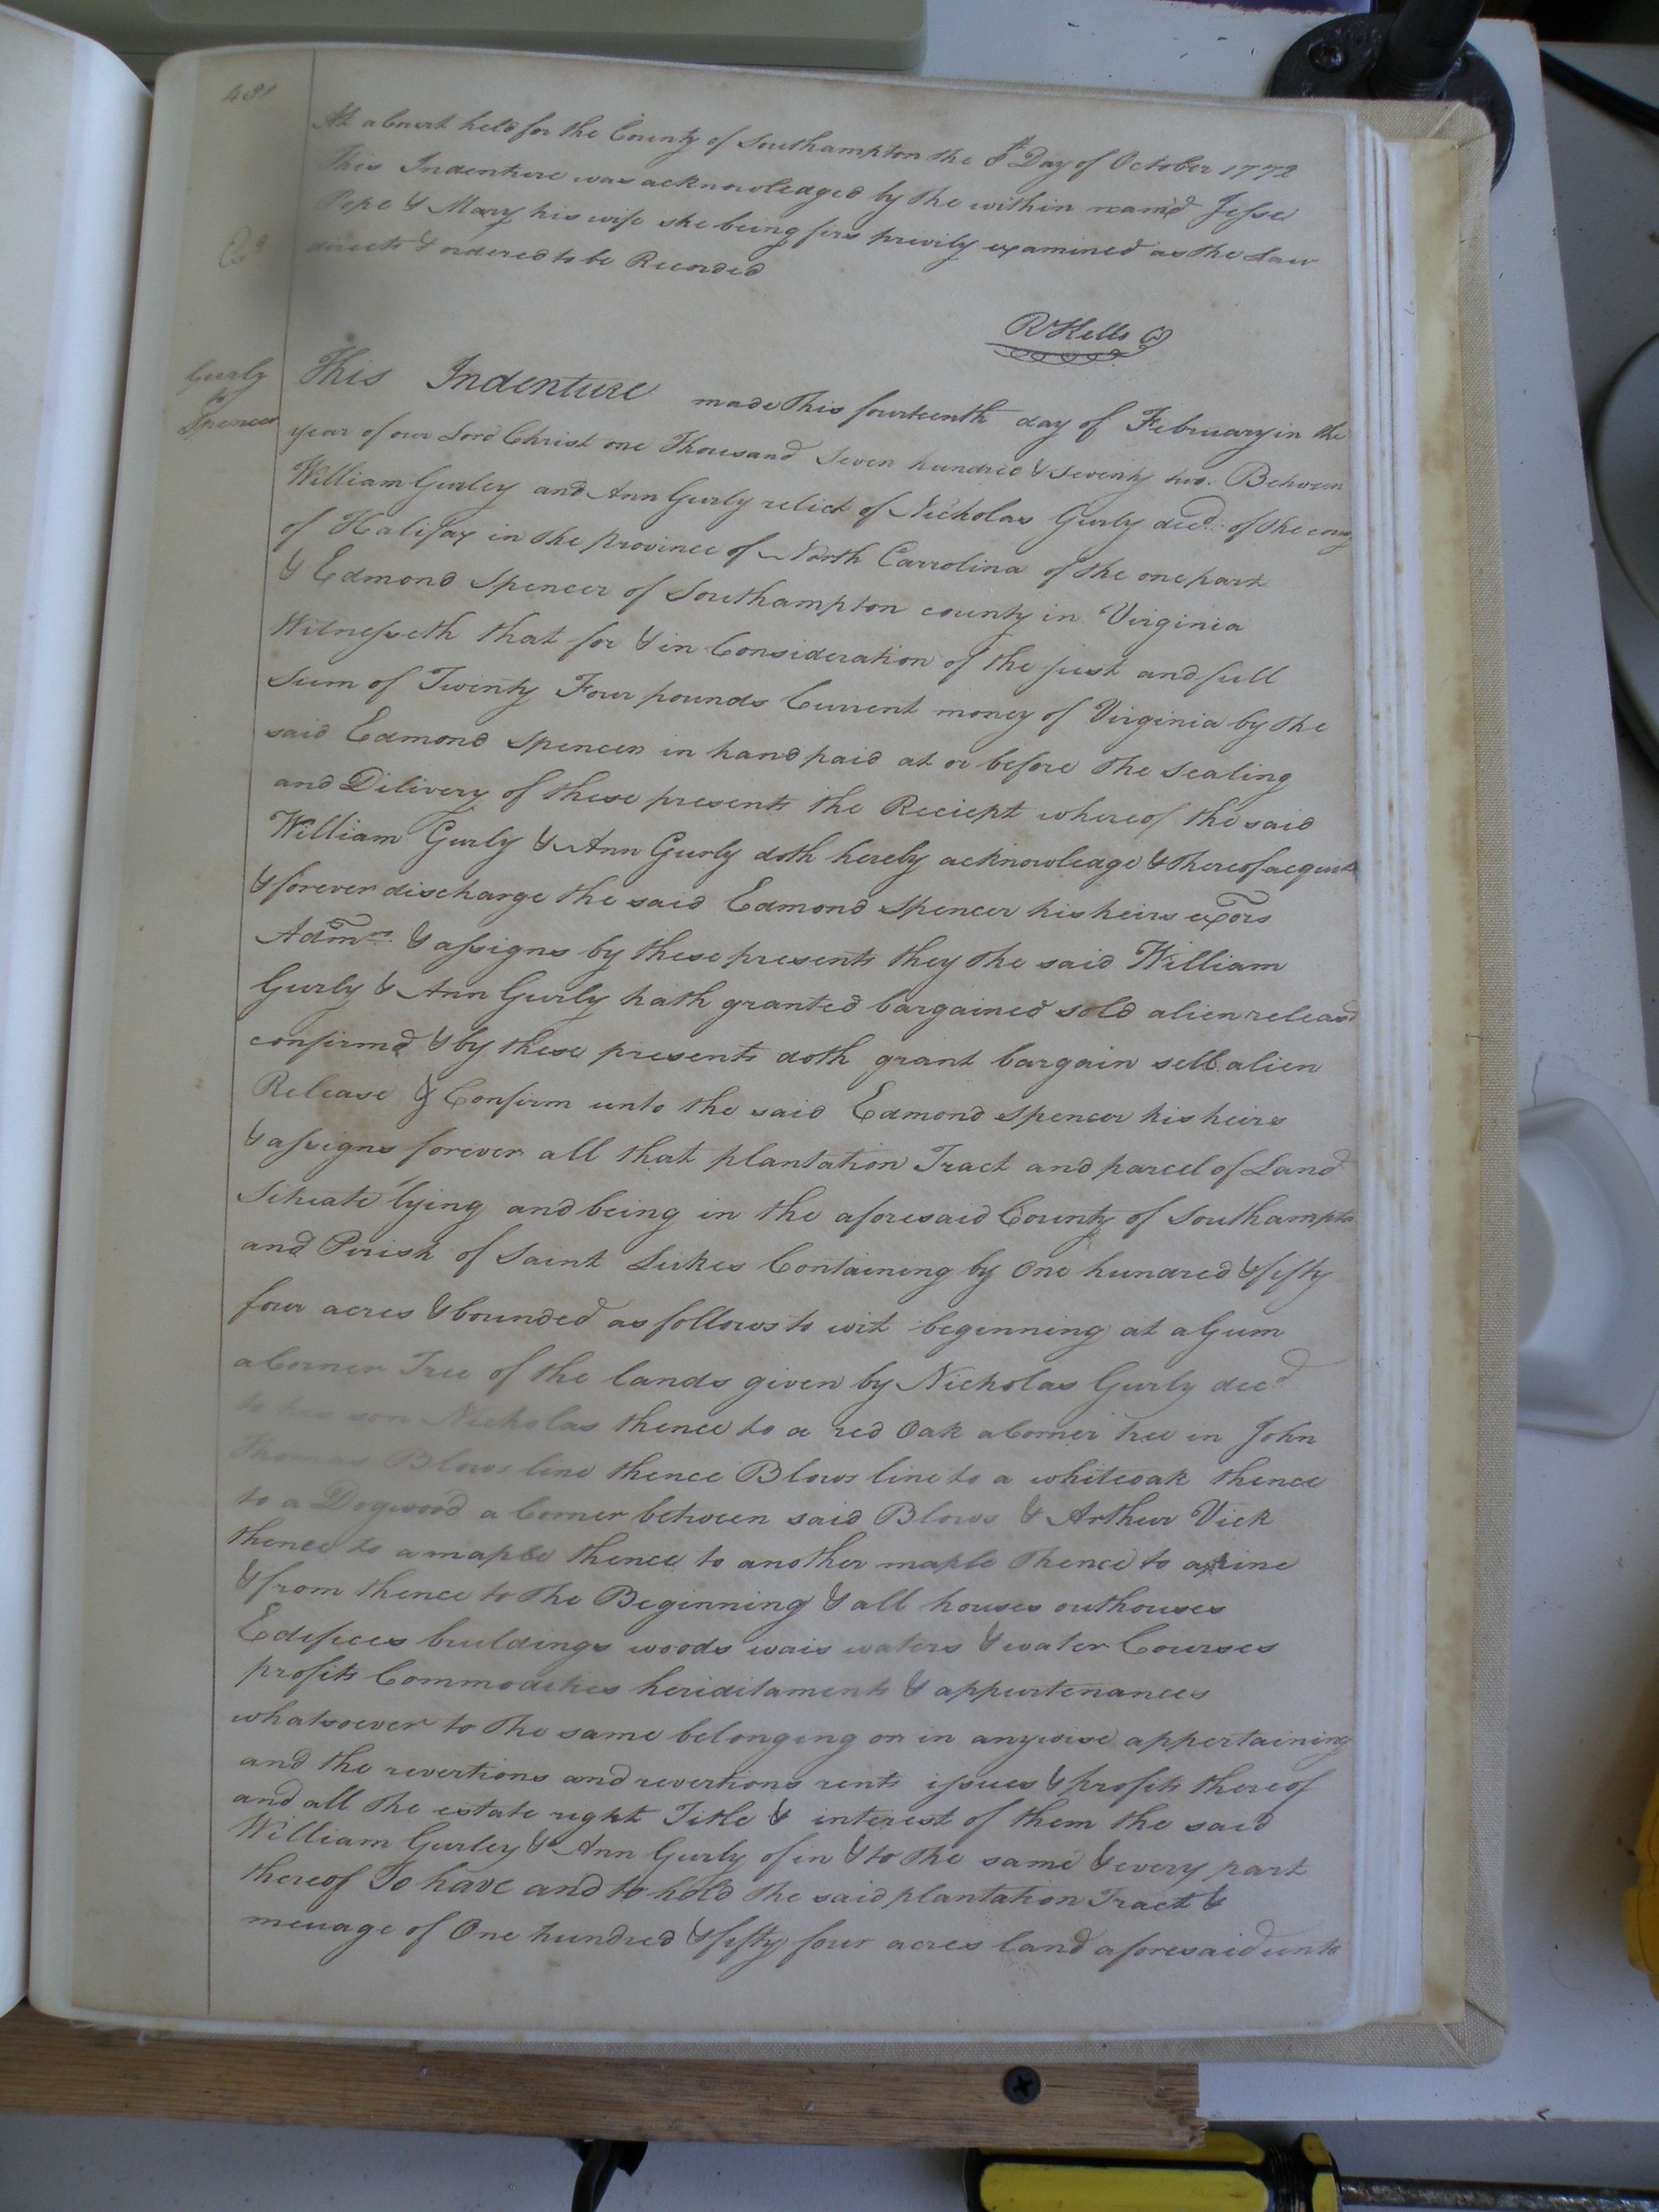 481
At a Court held for the County of Southampton the 8th Day of October 1772
This Indenture was acknowledged by the within nam'd Jesse
Pope & Mary his wife she being firs privily examined as the Law
directs & ordered to be Recorded
Exd
RKells C
Gurly
to
Spencer
This Indenture made this fourteenth day of February in the
year of our Lord Christ one Thousand Seven hundred & Seventy two. Between
William Gurley and Ann Gurly relict of Nicholas Gurly decd. of the couny
of Halifax in the province of North Carrolina of the one part
& Edmond Spencer of Southampton county in Virginia
Witnesseth that for & in Consideration of the just and full
Sum of Twenty Four pounds Current money of Virginia by the
said Edmond Spencer in hand paid at or before the Sealing
and Dilivery of these presents the Reciept whereof the said
William Gurly & Ann Gurly doth hereby acknowledge & thereof acquit
& forever discharge the said Edmond Spencer his heirs exors
Admrs. & assigns by these presents they the said William
Gurly & Ann Gurly hath granted bargained sold alien releasd
confirmd & by these presents doth grant bargain sell alien
Release & Confirm unto the said Edmond Spencer his heirs
& assigns forever all that plantation Tract and parcel of Land
Situate lying and being in the aforesaid County of Southampto
and Perish of Saint Lukes Containing by One hundred & fifty
four acres & bounded as follows to wit beginning at a Gum
a Corner Tree of the lands given by Nicholas Gurly decd
to his son Nicholas thence to a red Oak a Corner tree in John
Thomas Blows line thence Blows line to a whiteoak thence
to a Dogwood a Corner between said Blows & Arthur Vick
thence to a maple thence to another maple thence to a pine
& from thence to the Beginning & all houses outhouses
Edifices buildings woods wais waters & water Courses
profits Commodities heriditaments & appurtenances
whatsoever to the same belonging or in anywise appertaining
and the revertions and revertions rents issues & profits thereof
and all the estate right Title & interest of them the said
William Gurley & Ann Gurly of in & to the same & every part
thereof To have and to hold the said plantation Tract &
meuage of One hundred & fifty four acres land aforesaid unto